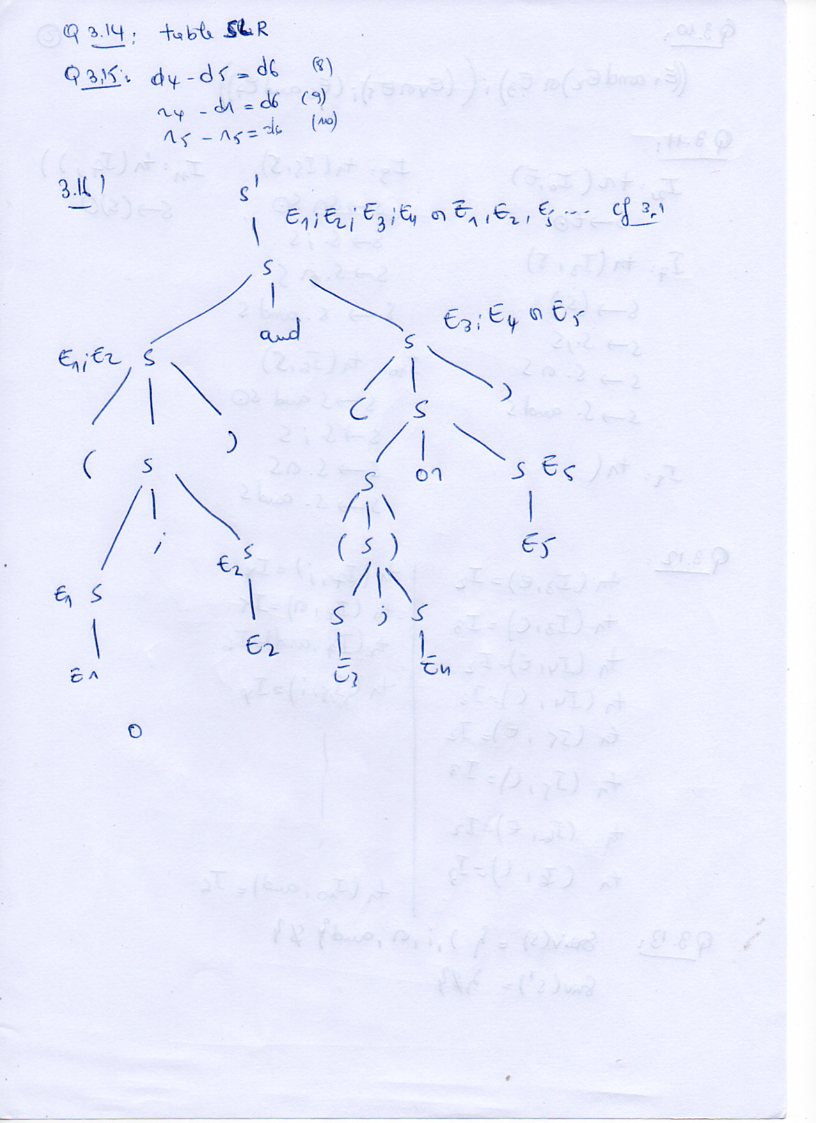 Q 3.14: table SLR
Q 3.15: d4 - d5 = d6 (8)
r4 - d1 = d6 (9)
r5 - r5 = d6 (10)
3.16)
S'
E1;E2;E3;E4 or E1,E2,E5... cf 3.1
S
and
E3;E4 or E5
E1;E2 S
S
( S )
( S )
S or S E5
; S
E2
( S )
E5
E1 S
S ; S
E2
E1
E3 E4
0